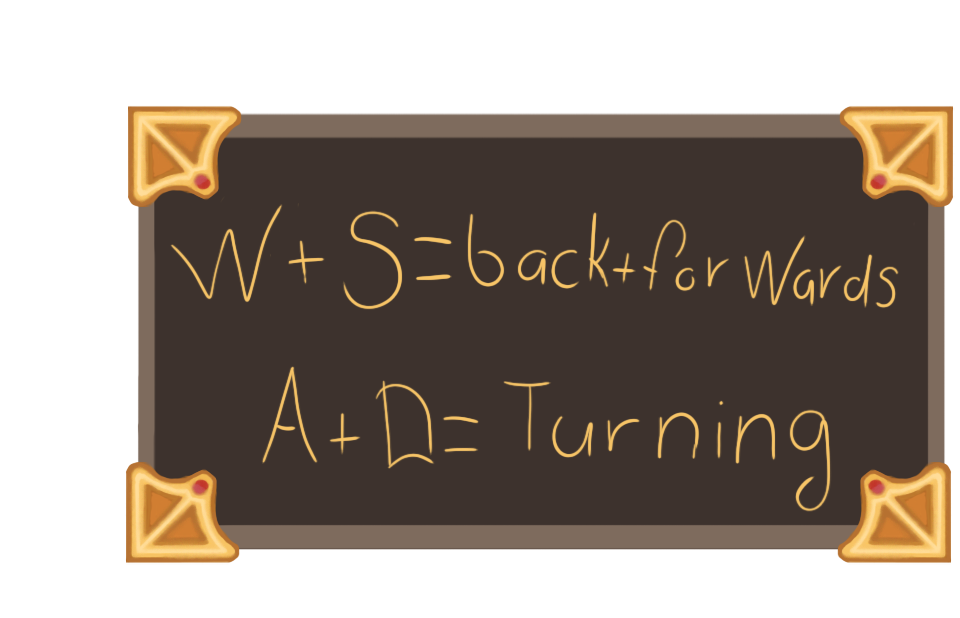 W + S = back + for Wards
A + D = Turning